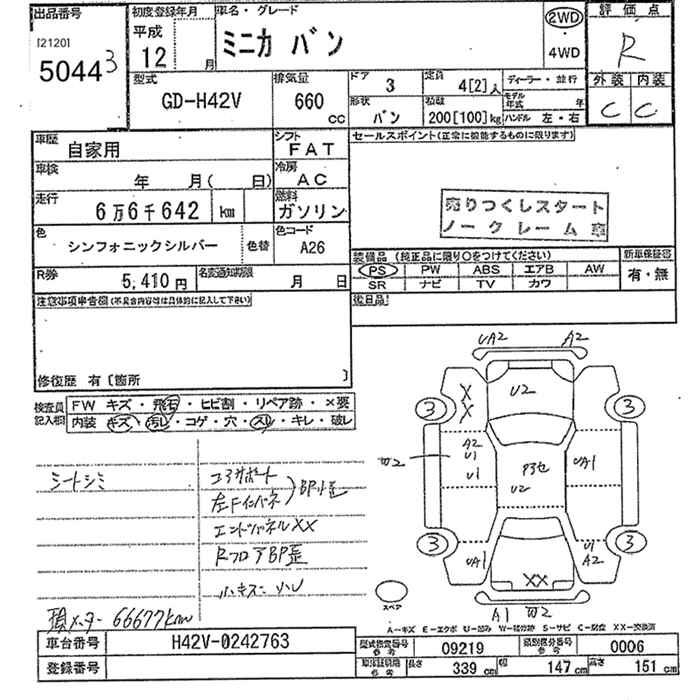 出品番号
初度登録年月
車名・グレード
評価点
[2120]
5044 3
平成
12 月
ミニカ バン
2WD
4WD
R
型式
GD-H42V
排気量
660 CC
ドア 3
定員 4[2]人
ディーラー・並行
モデル年式 年
形状 バン
積載 200[100]kg
ハンドル 左・右
外装 内装
C C
車歴
自家用
シフト
FAT
セールスポイント(正常に機能するものに限ります)
車検
年 月( 日)
冷房
AC
走行
6万6千642 km
燃料
ガソリン
売りつくしスタート
ノークレーム
色
シンフォニックシルバー
色替
色コード
A26
装備品 (純正品に限り○をつけてください)
新車保証書
PS PW ABS エアB AW
有・無
SR ナビ TV カワ
R券
5,410円
名変通知期限
月 日
後日品
注意事項申告欄(不具合内容等は具体的に記入して下さい)
修復歴 有〔箇所 〕
検査員記入欄
FW キズ・飛石・ヒビ割・リペア跡・×要
内装 キズ・汚レ・コゲ・穴・スレ・キレ・破レ
シートシミ
コアサポート
左Fインパネ
BP小歪
エンドパネルXX
RフロアBP歪
小キズ
積メーター 66677km
UA2 A2
X
X
U2
3 3
A2
U1
U1
U2
UA1
3 3
UA1
U1
A2
XX
A1
スペア
A-キズ E-エクボ U-凹み W-補修跡 S-サビ C-腐食 XX-交換済
車台番号
H42V-0242763
登録番号
型式指定番号 参考
09219
類別区分番号 参考
0006
車体証明書 参考
長さ 339 cm
幅 147 cm
高さ 151 cm